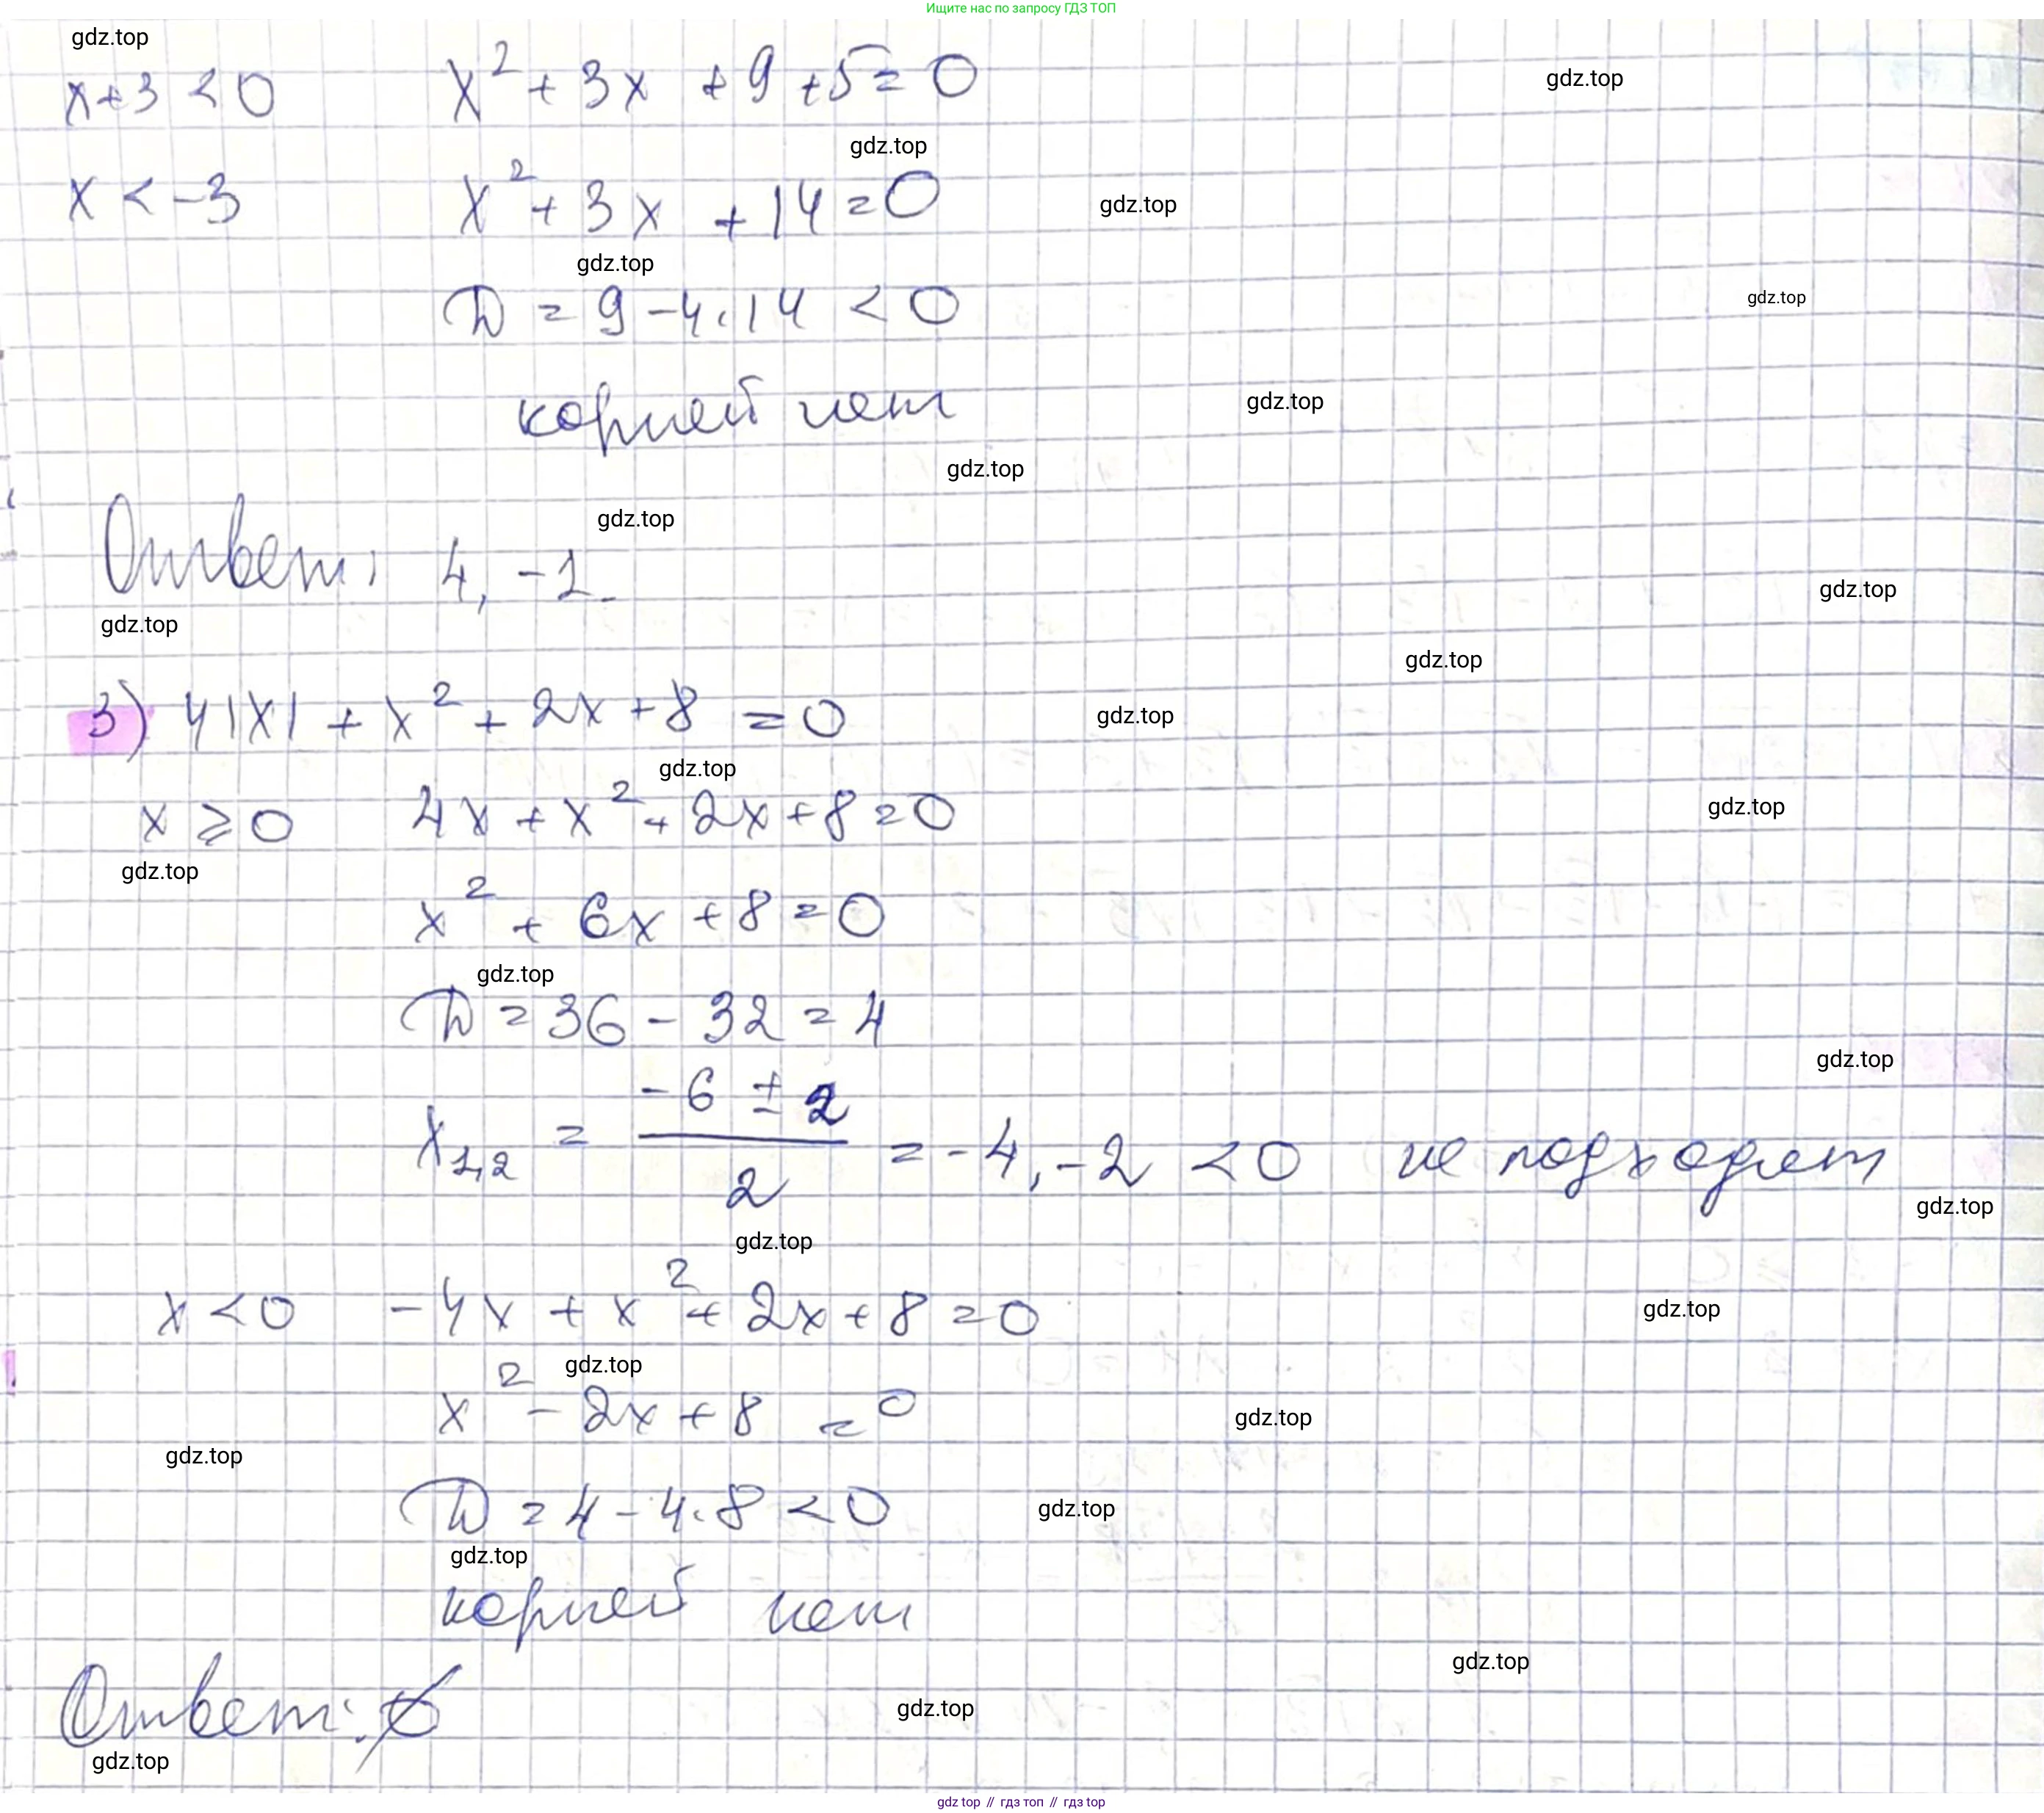 Ищите нас по запросу ГДЗ ТОП
gdz.top
x+3 < 0 x² + 3x + 9 + 5 = 0
gdz.top
gdz.top
x < -3 x² + 3x + 14 = 0
gdz.top
gdz.top
D = 9 - 4·14 < 0
gdz.top
корней нет
gdz.top
gdz.top
gdz.top
Ответ: 4, -1.
gdz.top
gdz.top
gdz.top
3) 4|x| + x² + 2x + 8 = 0
gdz.top
gdz.top
x ⩾ 0 4x + x² + 2x + 8 = 0
gdz.top
gdz.top
x² + 6x + 8 = 0
gdz.top
D = 36 - 32 = 4
gdz.top
x₁,₂ = (-6 ± 2)/2 = -4, -2 < 0 не подходят
gdz.top
gdz.top
x < 0 -4x + x² + 2x + 8 = 0
gdz.top
gdz.top
x² - 2x + 8 = 0
gdz.top
gdz.top
D = 4 - 4·8 < 0
gdz.top
gdz.top
корней нет
gdz.top
Ответ: ∅
gdz.top
gdz.top
gdz top // гдз топ // гдз top